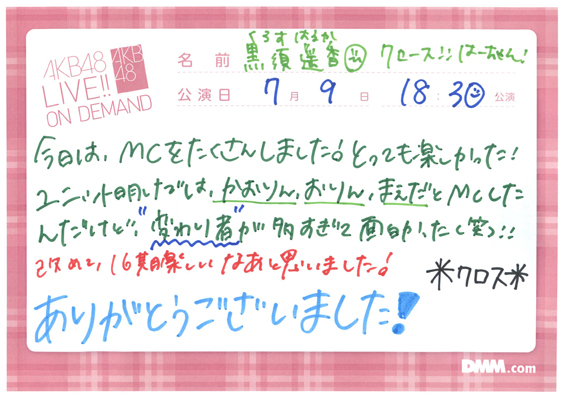 AKB48
LIVE!!
ON DEMAND
AKB
48
くろす はるか
名前 黒須遥香 クロース!! はーちゃん!
公演日 7月9日 18:30 公演
今日は、MCをたくさんしました!とっても楽しかった!
ユニット明けでは、かおりん、おりん、まえだとMCした
んだけど、"変わり者"が多すぎて面白かったく笑う!!
改めて、16期楽しいなあと思いました!
*クロス*
ありがとうございました!
DMM.com